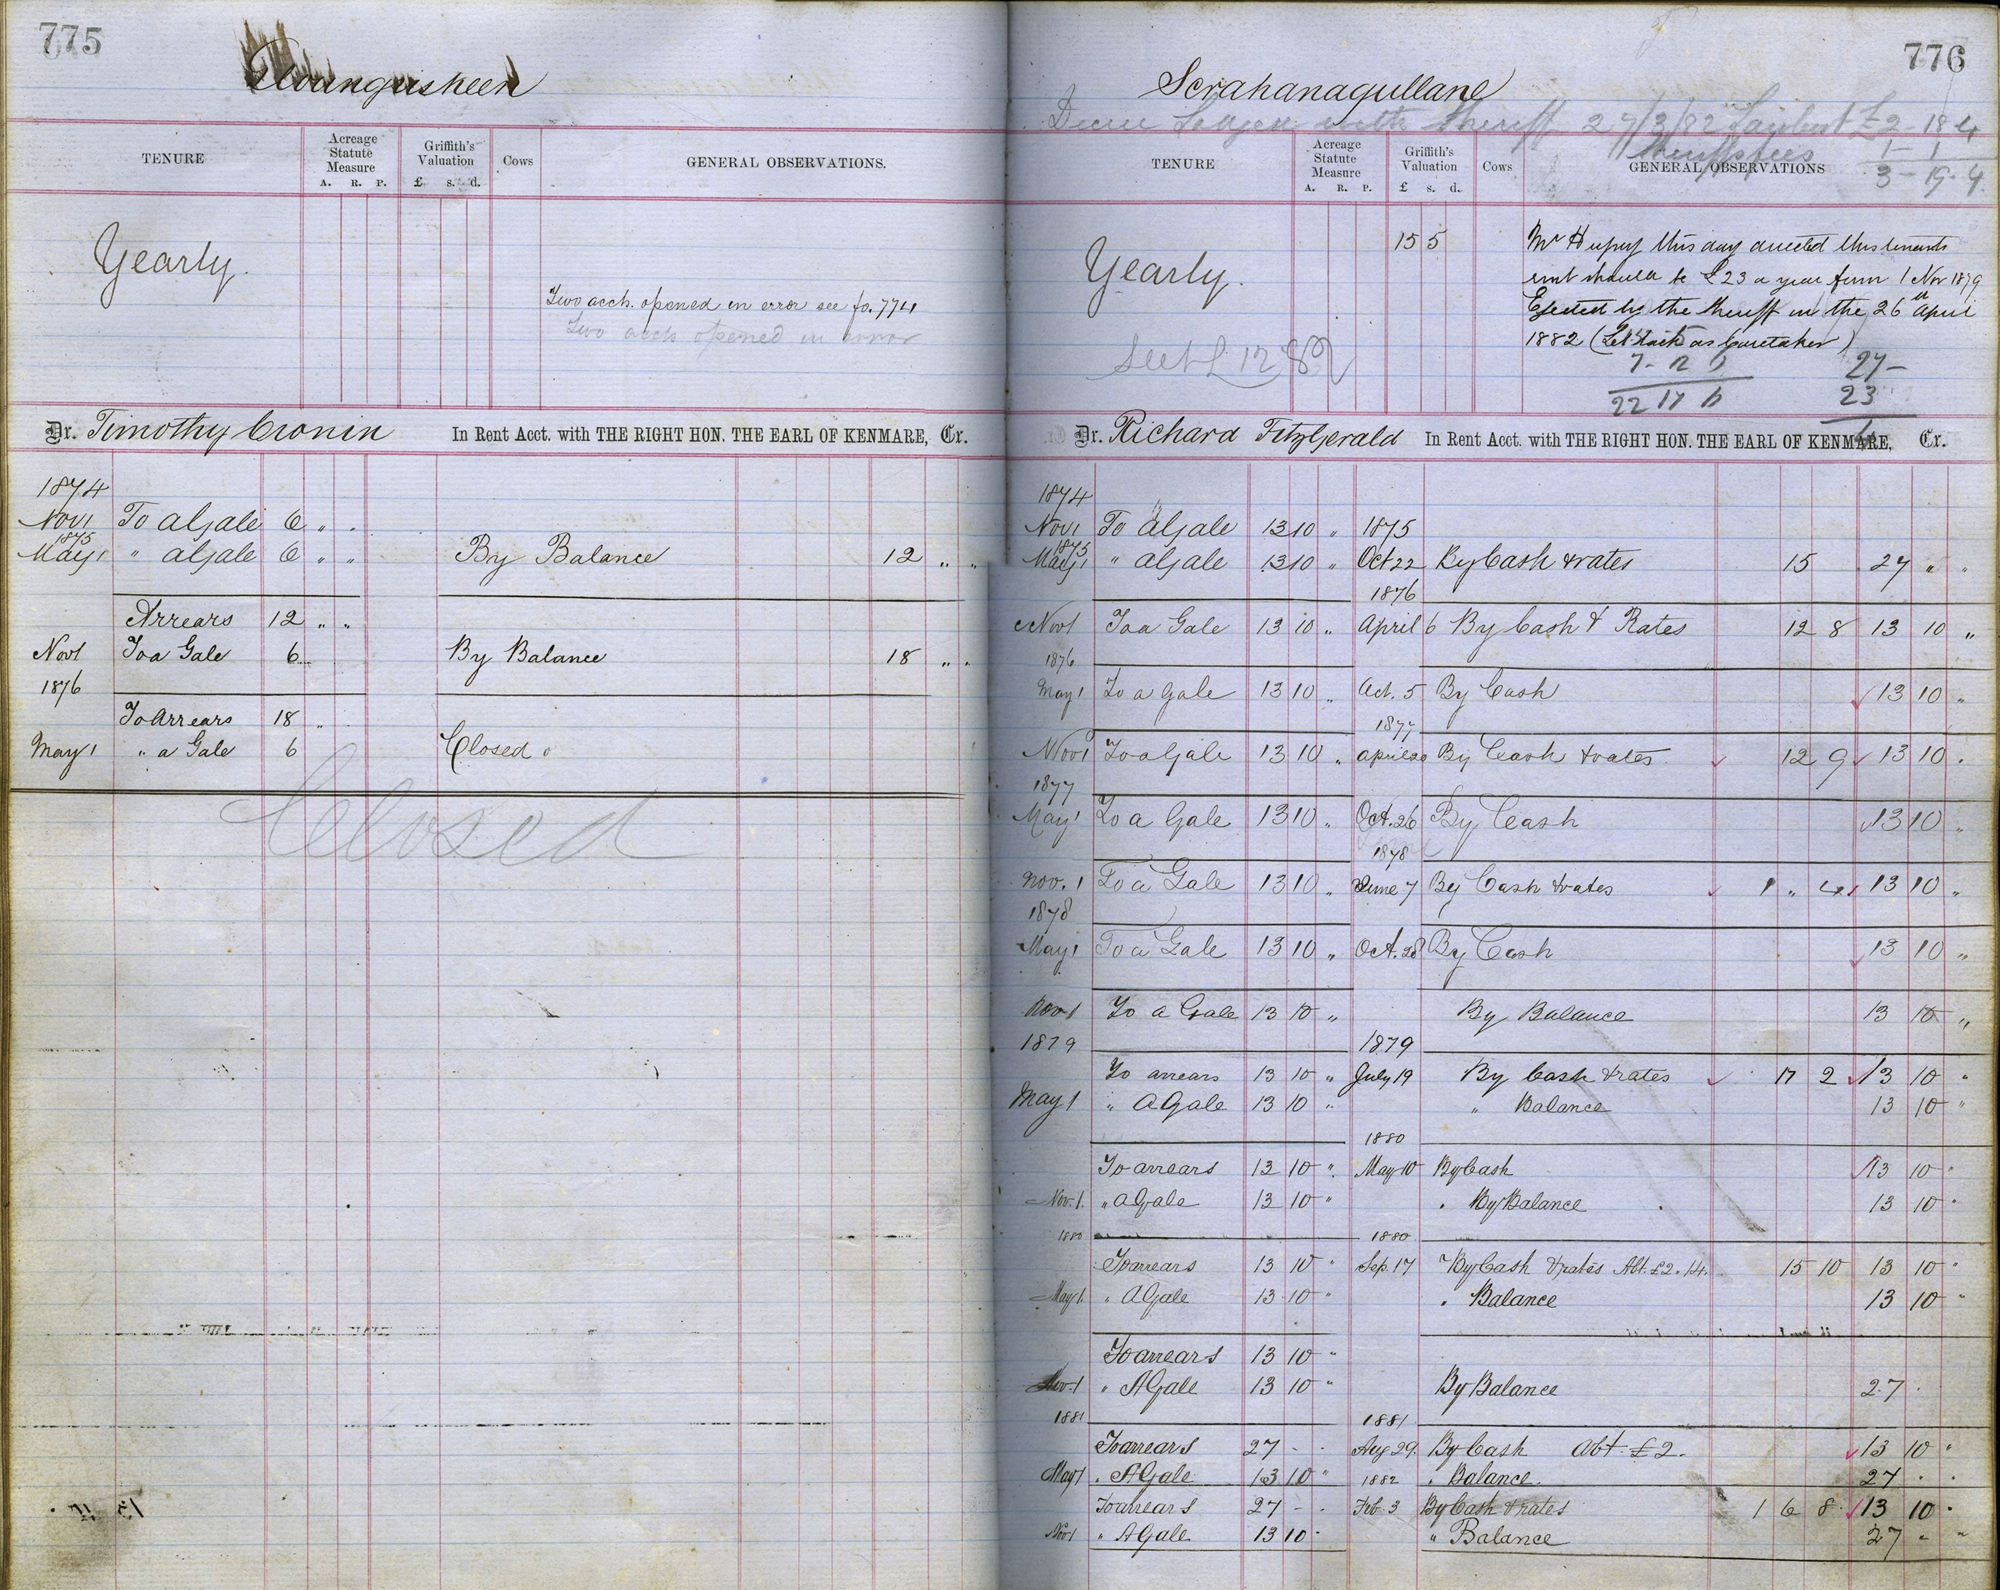 775
TENURE
Acreage Statute Measure
A. R. P.
Griffith's Valuation
£ s. d.
Cows
GENERAL OBSERVATIONS.
Yearly.
Two accts. opened in error see fo. 774
Two accts opened in error
Dr. Timothy Cronin In Rent Acct. with THE RIGHT HON. THE EARL OF KENMARE, Cr.
1874
Nov 1 To a Gale 6 " "
1875
May 1 " a Gale 6 " " By Balance 12 " "
Arrears 12 " "
Nov 1 To a Gale 6 By Balance 18 " "
1876
To Arrears 18 "
May 1 " a Gale 6 Closed
Closed
776
Scrahanagullane
Decree Lodged with Sheriff 27/3/82 £2-18-4
Sheriffs fees 1-1
3-19-4
TENURE
Acreage Statute Measure
A. R. P.
Griffith's Valuation
£ s. d.
Cows
GENERAL OBSERVATIONS
Yearly.
15 5
Mr Hussey this day directed this tenants
rent should be £23 a year from 1 Nov 1879
Ejected by the Sheriff on the 26th April
1882 (Let back as Caretaker)
27-
22 17 6 23
Dr. Richard Fitzgerald In Rent Acct. with THE RIGHT HON. THE EARL OF KENMARE, Cr.
1874
Nov 1 To a Gale 13 10 " 1875
1875
May 1 " a Gale 13 10 " Oct 22 By Cash & rates 15 27 " "
1876
Nov 1 To a Gale 13 10 " April 6 By Cash & Rates 12 8 13 10 "
1876
May 1 To a Gale 13 10 " Oct. 5 By Cash 13 10 "
1877
Nov 1 To a Gale 13 10 " April 20 By Cash & rates 12 9 13 10 "
1877
May 1 To a Gale 13 10 " Oct. 26 By Cash 13 10 "
1878
Nov. 1 To a Gale 13 10 " June 7 By Cash & rates 1 " 4 13 10 "
1878
May 1 To a Gale 13 10 " Oct. 28 By Cash 13 10 "
Nov 1 To a Gale 13 10 " By Balance 13 10 "
1879 1879
To arrears 13 10 " July 19 By Cash & rates 17 2 13 10 "
May 1 " A Gale 13 10 " " Balance 13 10 "
1880
To arrears 13 10 " May 10 By Cash 13 10 "
Nov. 1. " A Gale 13 10 " " By Balance 13 10 "
1880 1880
To arrears 13 10 " Sep. 17 By Cash & rates Abt. £2.14. 15 10 13 10 "
May 1. " A Gale 13 10 " " Balance 13 10 "
To arrears 13 10 "
Nov 1 " A Gale 13 10 " By Balance 27
1881 1881
To arrears 27 - Aug 29. By Cash Abt £2. 13 10 "
May 1 " A Gale 13 10 " 1882 " Balance. 27
To arrears 27 - Feb. 3 By Cash & rates 1 6 8 13 10 "
Nov 1 " A Gale 13 10 " Balance 27 " "